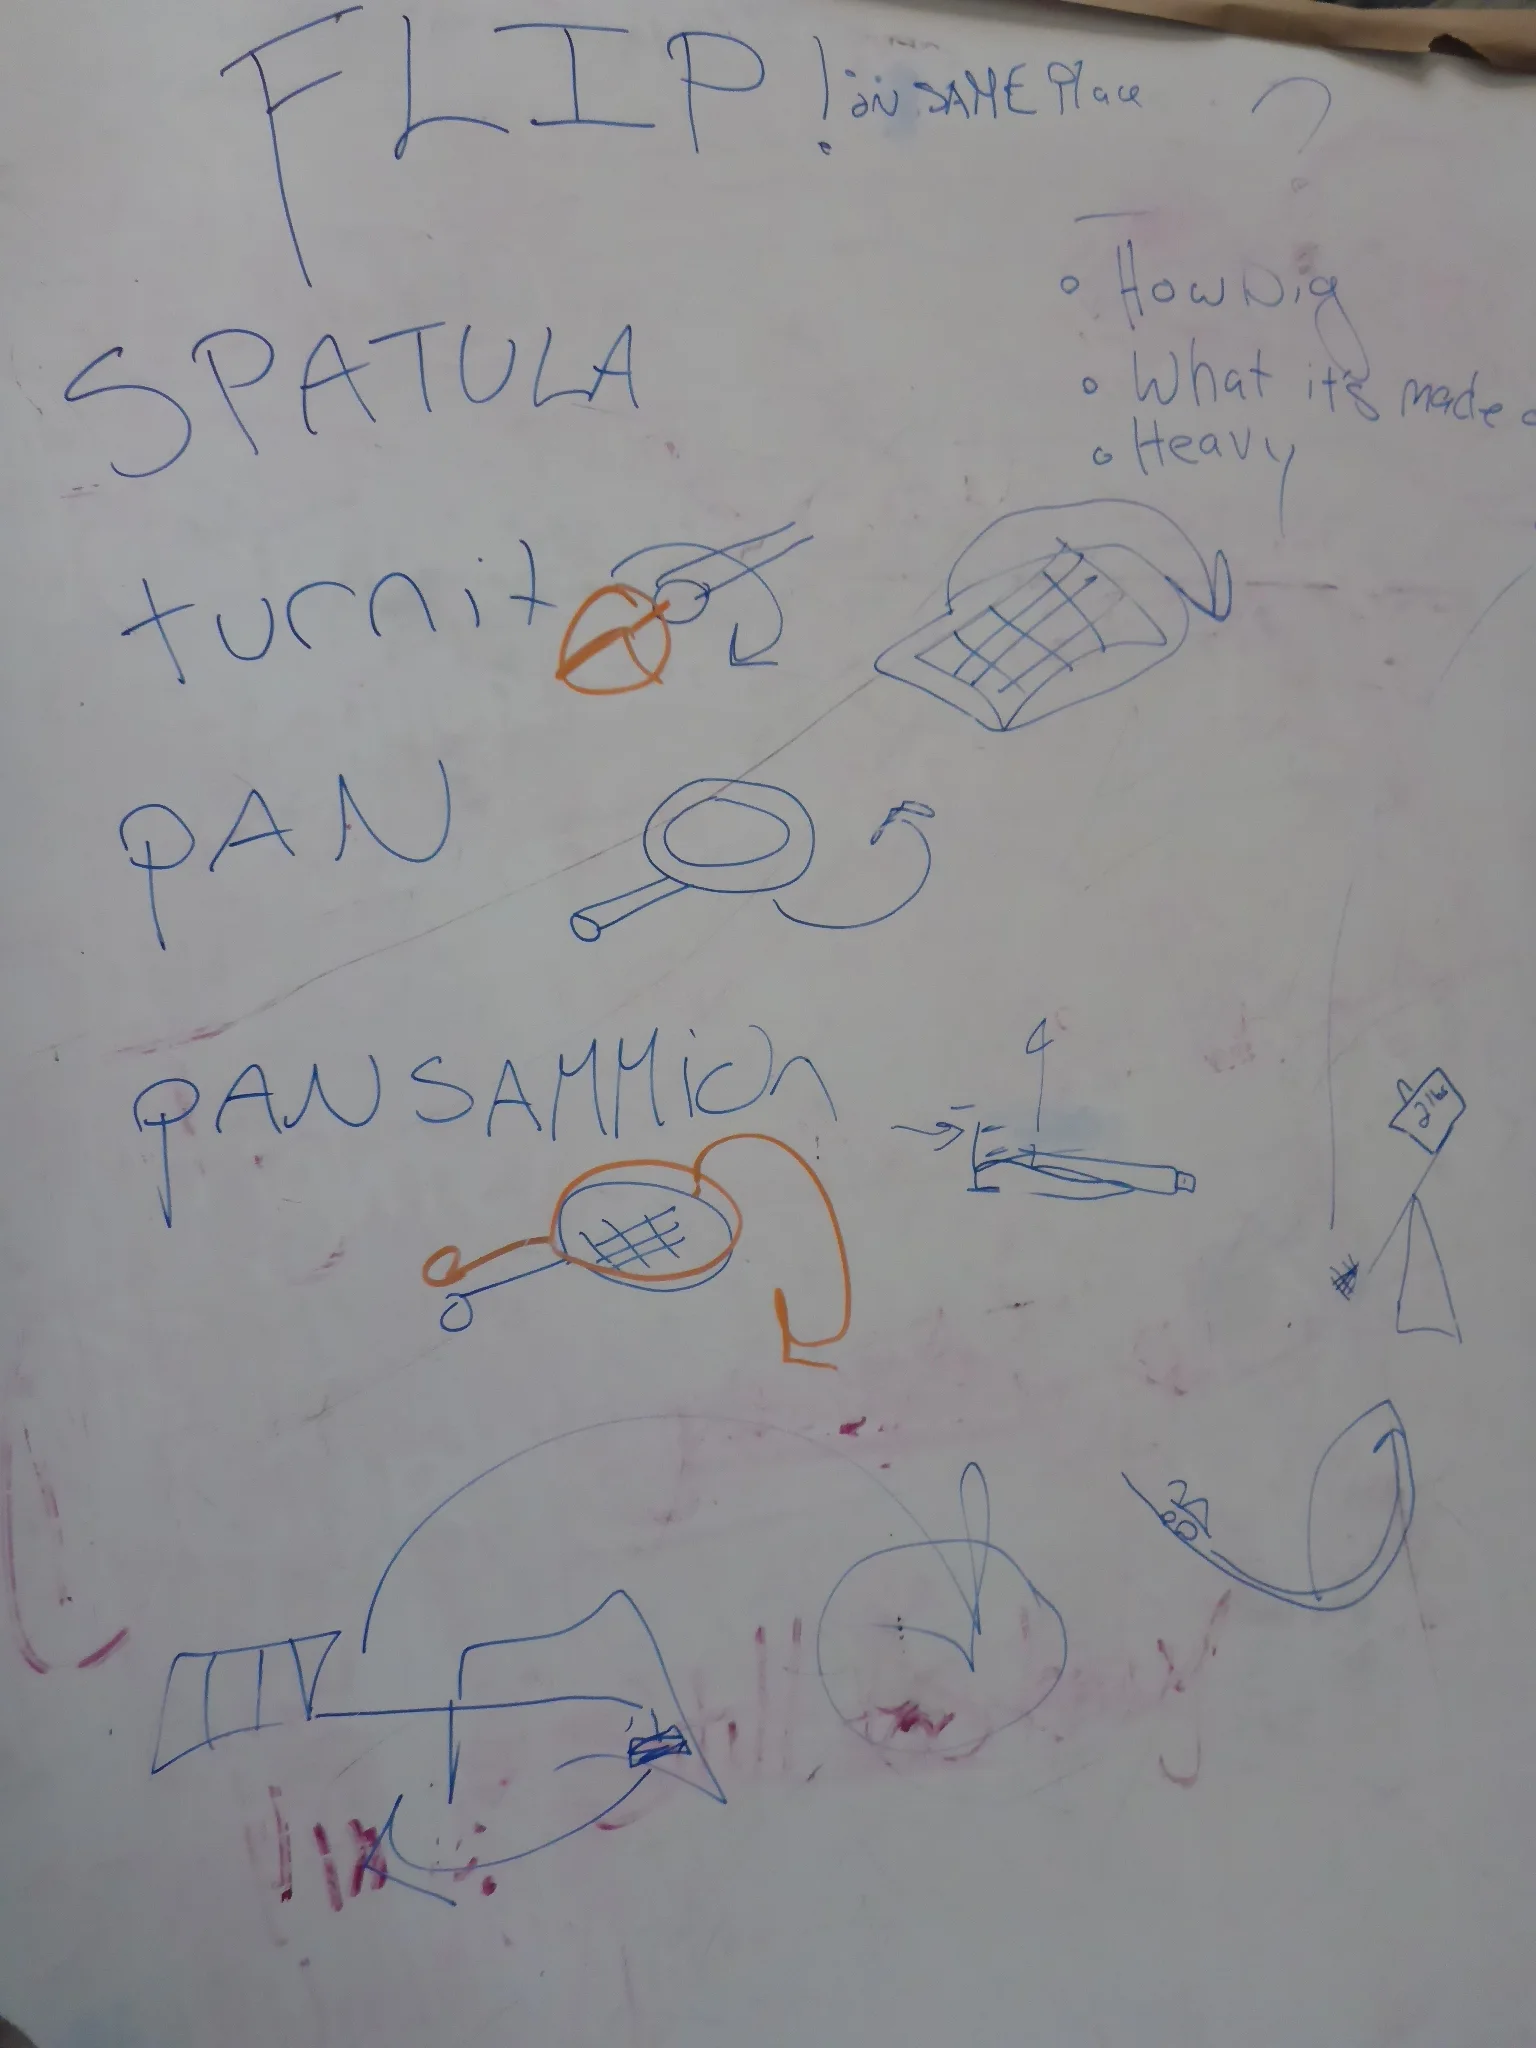 FLIP! in SAME Place
?
• How big
• What it's made
• Heavy
SPATULA
turnit
PAN
PAN SAMMich
2 lbs